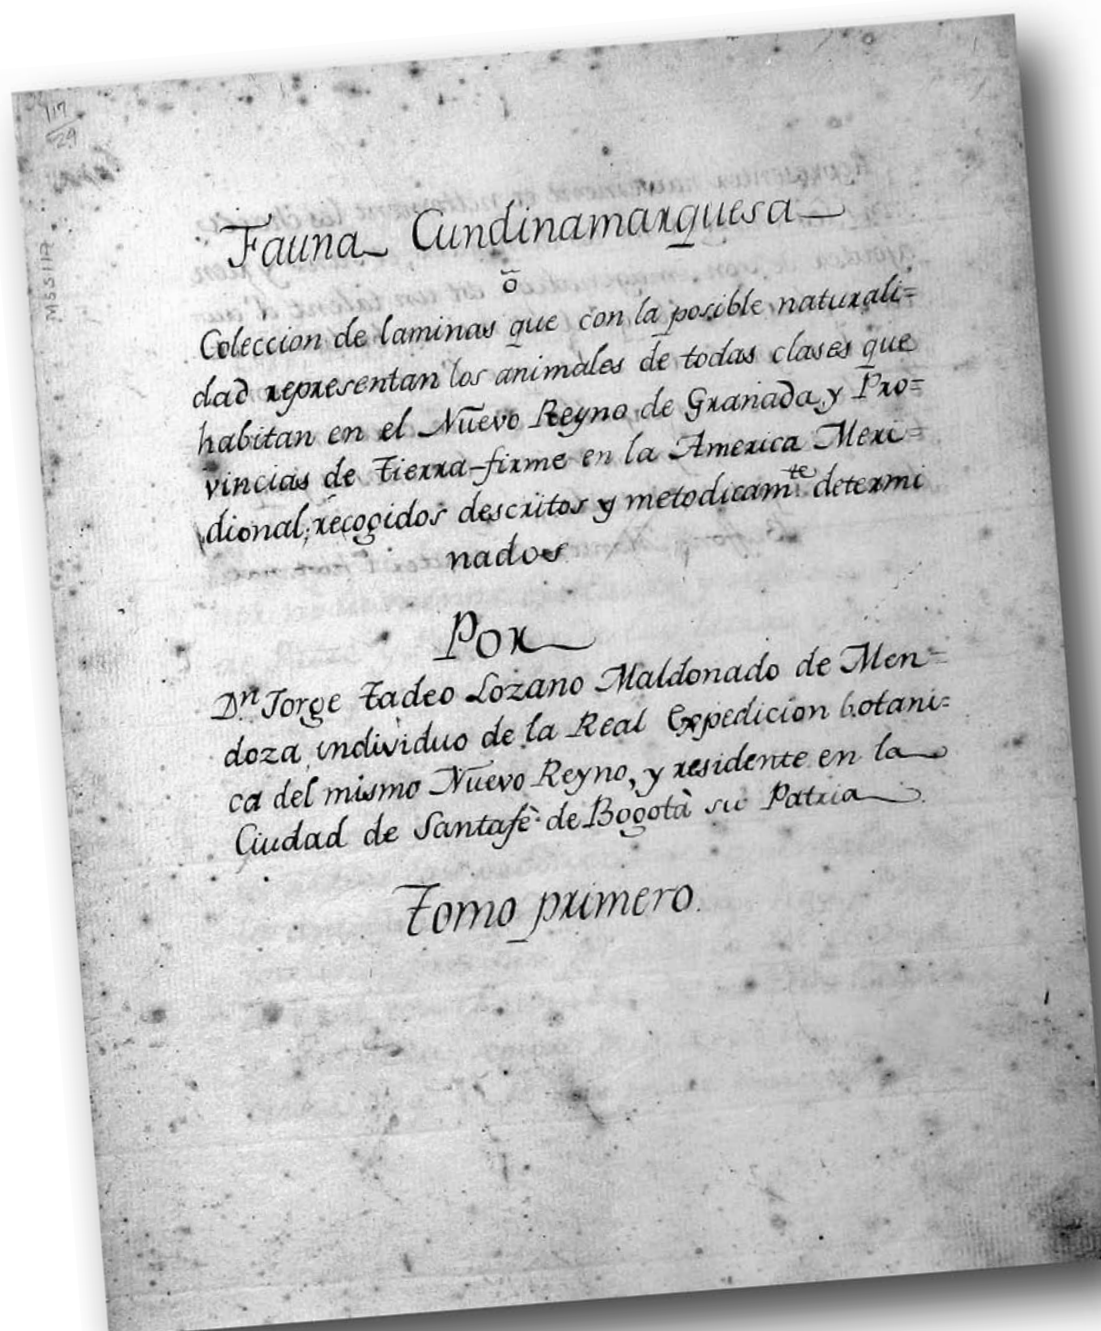 117
29
MSS 117
Fauna Cundinamarquesa
ö
Coleccion de laminas que con la posible naturali=
dad representan los animales de todas clases que
habitan en el Nuevo Reyno de Granada, y Pro=
vincias de Tierra-firme en la America Meri=
dional; recogidos descritos y metodicamte determi
nados
Por
Dn Jorge Tadeo Lozano Maldonado de Men=
doza individuo de la Real Expedicion botani=
ca del mismo Nuevo Reyno, y residente en la
Ciudad de Santafè de Bogotà su Patria
Tomo primero.